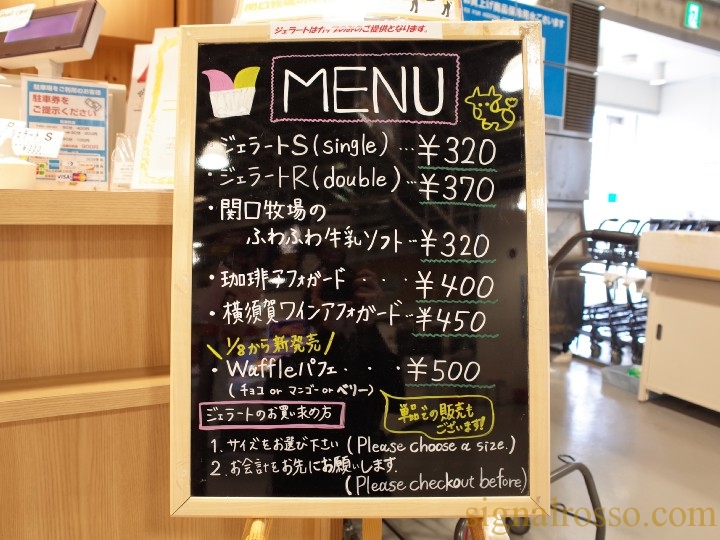 ジェラートはカップのみのご提供となります。
駐車券を
ご提示ください
ジェラート S
MENU
・ジェラートS(single)…¥320
・ジェラートR(double)…¥370
・関口牧場の
ふわふわ牛乳ソフト…¥320
・珈琲アフォガード・・・¥400
・横須賀ワインアフォガード…¥450
\1/8から新発売/
・Waffleパフェ・・・¥500
(チョコ or マンゴー or ベリー)
単品での販売も
ございます!
ジェラートのお買い求め方
1.サイズをお選び下さい(Please choose a size.)
2.お会計をお先にお願いします。
(Please checkout before)
signalrosso.com